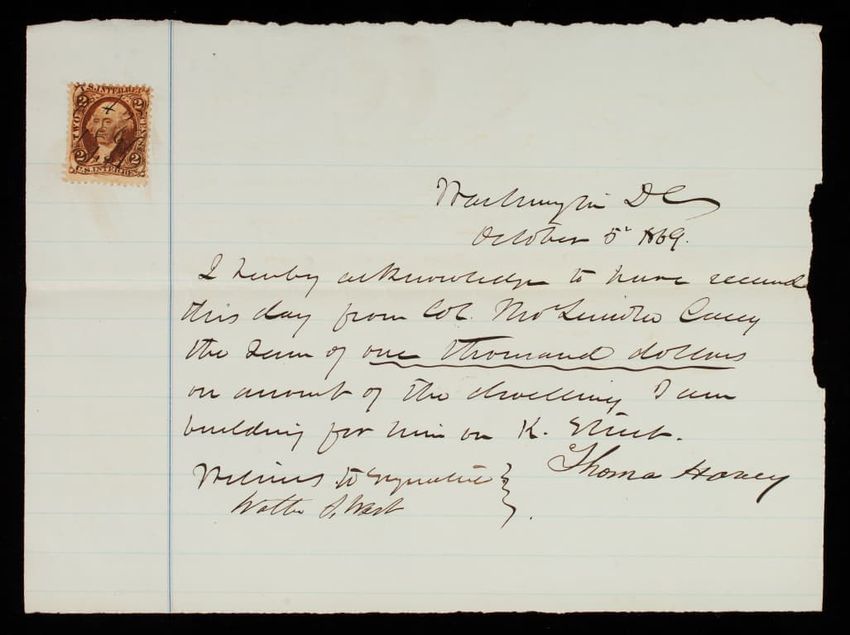 U.S. INTER. REV.
2 2
TWO CENTS
2 2
U.S. INTER. REV.
Washington DC
October 5th 1869.
I hereby acknowledge to have received
this day from Col. Thos Lincoln Casey
the Sum of one thousand dollars
on account of the dwelling I am
building for him on K. Street.
Thomas
Witness to Signature
Walter S. West